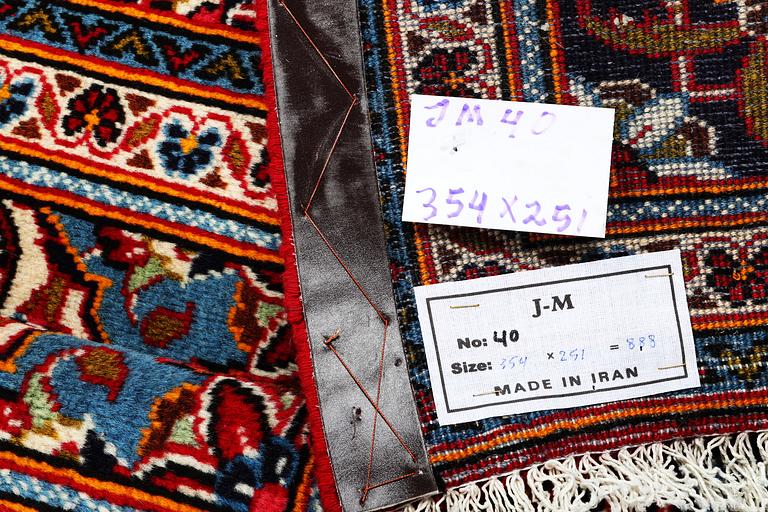 JM 40
354 x 251
J-M
No: 40
Size: 354 x 251 = 8,88
MADE IN IRAN